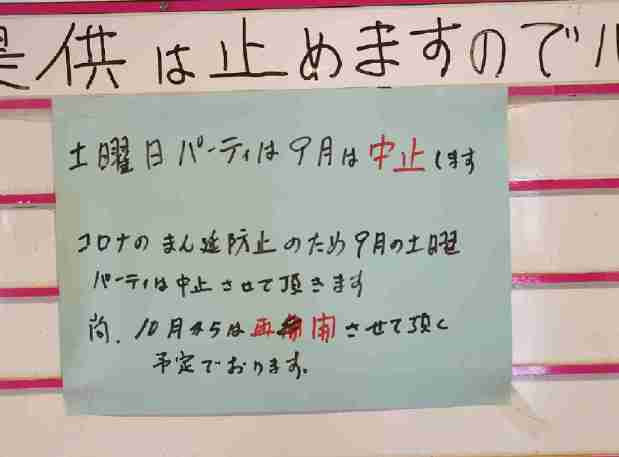 是供は止めますので
土曜日パーティは9月は中止します
コロナのまん延防止のため9月の土曜
パーティは中止させて頂きます
尚、10月からは再開させて頂く
予定でおります。